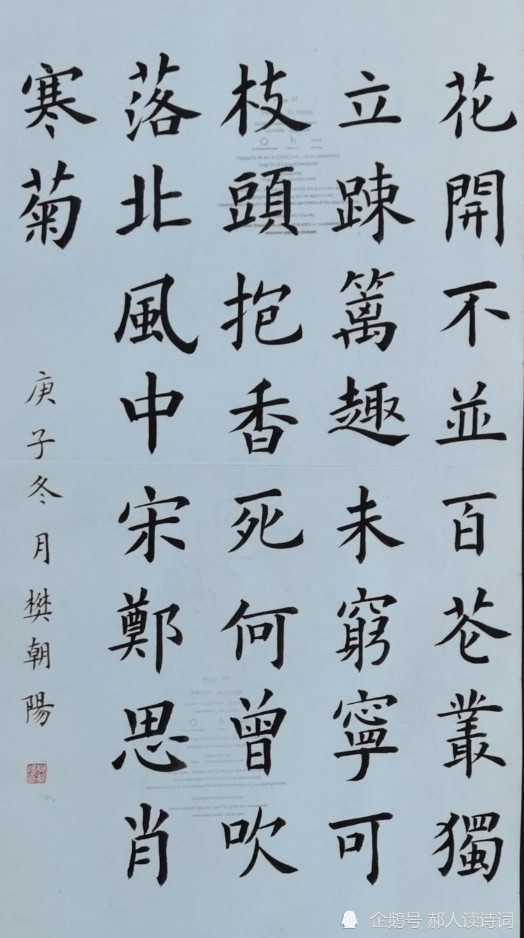 花開不並百芲叢獨
立踈篱趣未窮寧可
枝頭抱香死何曾吹
落北風中宋鄭思肖
寒菊
庚子冬月樊朝陽
企鹅号 郝人读诗词